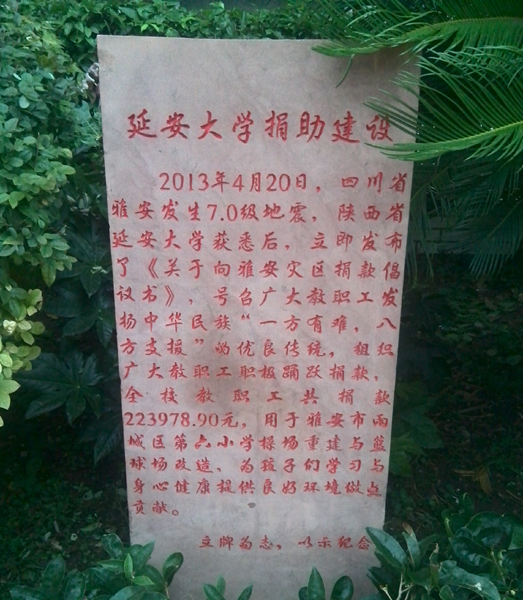 延安大学捐助建设
2013年4月20日，四川省
雅安发生7.0级地震，陕西省
延安大学获悉后，立即发布
了《关于向雅安灾区捐款倡
议书》，号召广大教职工发
扬中华民族“一方有难，八
方支援”的优良传统，组织
广大教职工职极踊跃捐款，
全校教职工共捐款
223978.90元，用于雅安市雨
城区第六小学操场重建与篮
球场改造，为孩子们学习与
身心健康提供良好环境做点
贡献。
立牌为志，以示纪念